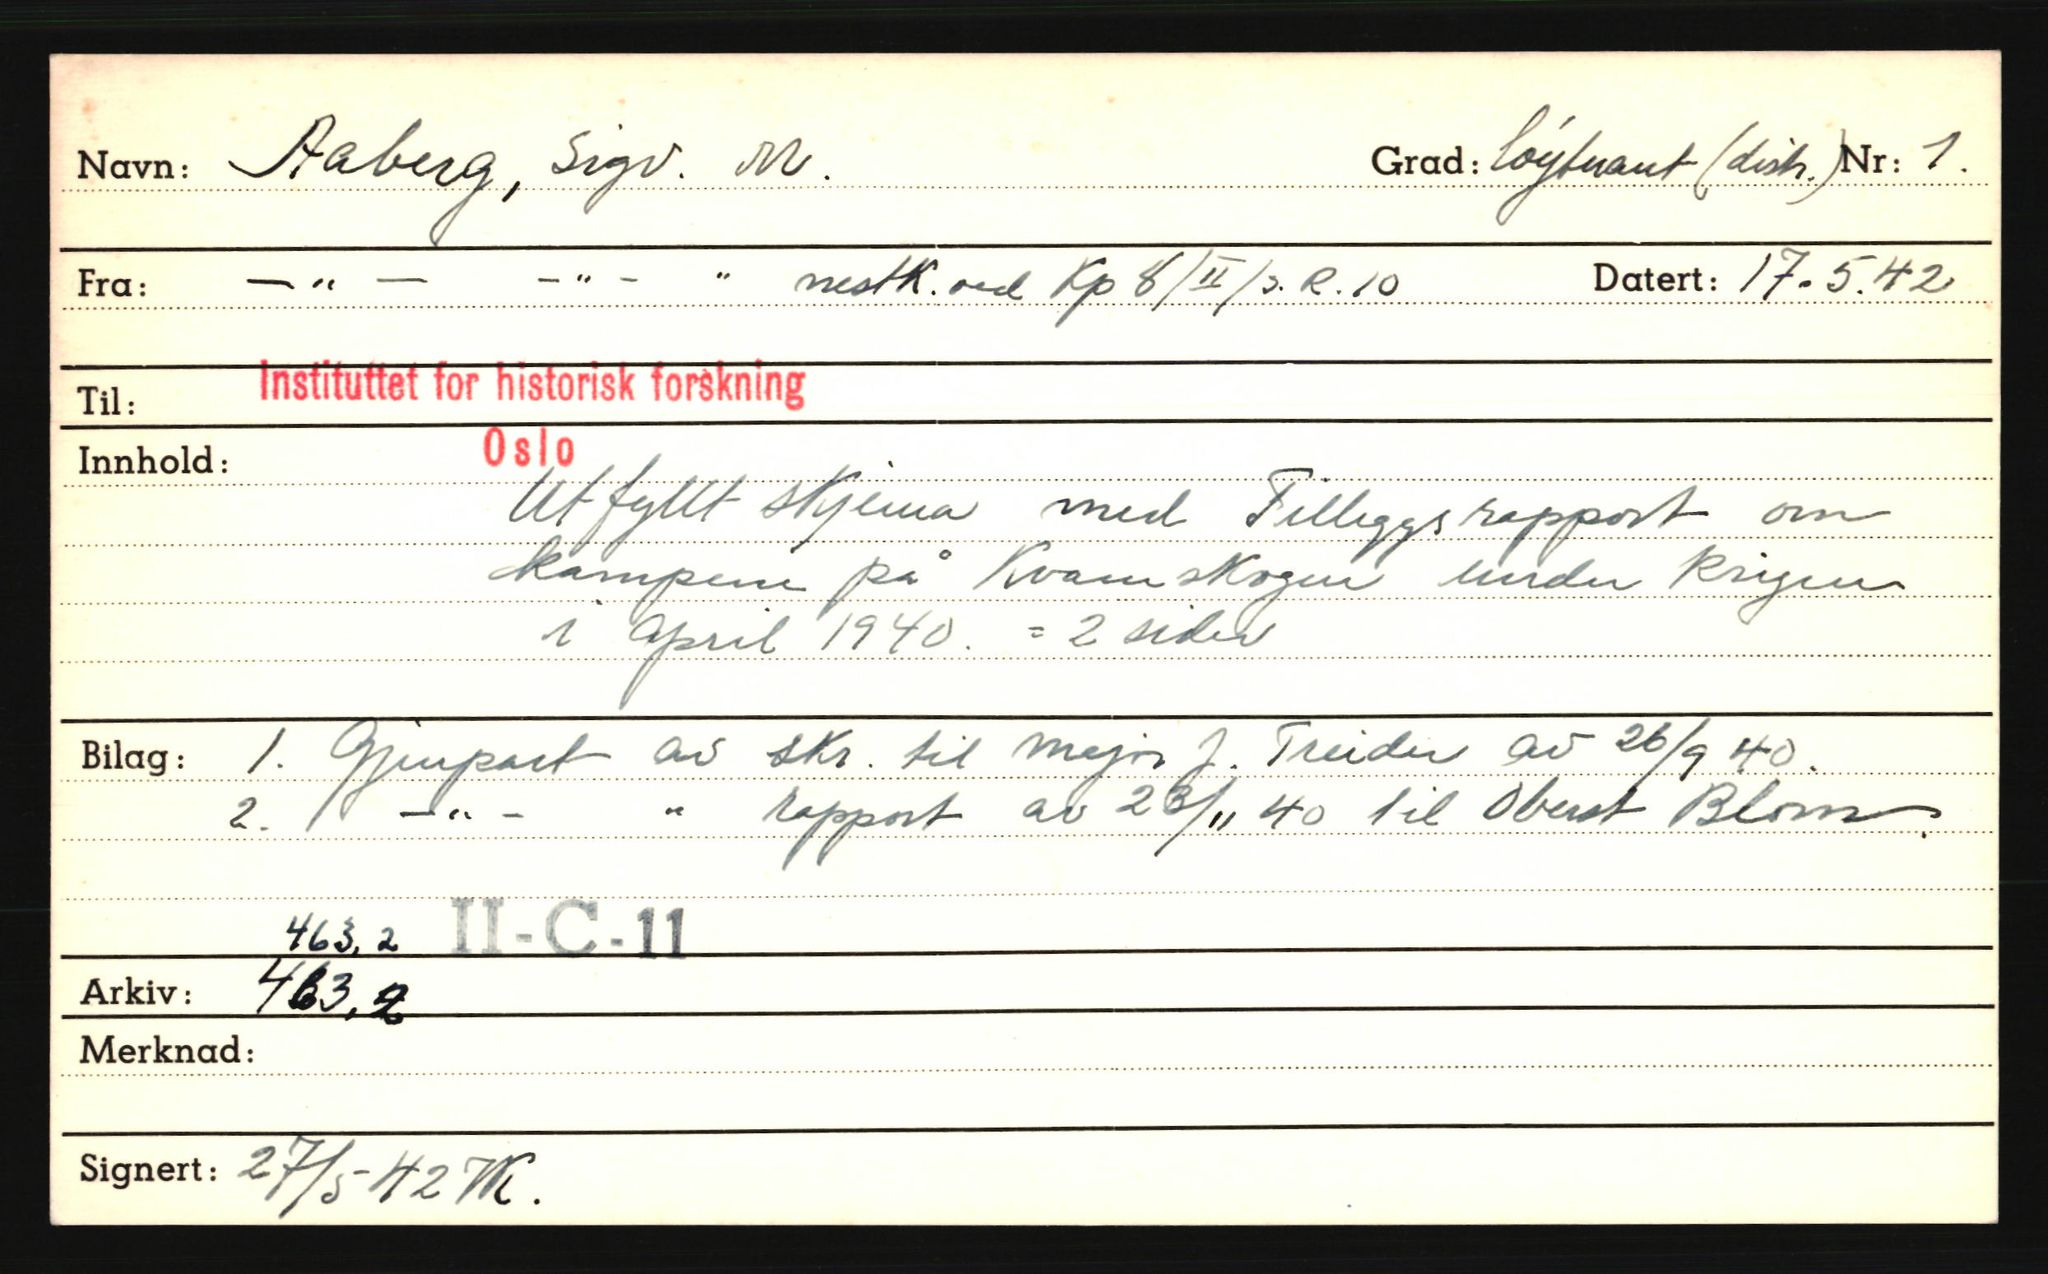 Navn: Aaberg, Sigv. M. Grad: løytnant (distr.) Nr: 1.
Fra: — " — - " - " nestk. ved Kp 8/II/I.R.10 Datert: 17.5.42
Til: Instituttet for historisk forskning
Oslo
Innhold:
Utfyllt skjema med Tilleggsrapport om
kampene på Kvamskogen under krigen
i april 1940. = 2 sider
Bilag: 1. Gjenpart av skr. til major J. Treider av 26/9 40.
2. - " - " rapport av 23/11 40 til Oberst Blom.
463,2 II-C-11
Arkiv: 463,2
Merknad:
Signert: 27/5-42 VK.